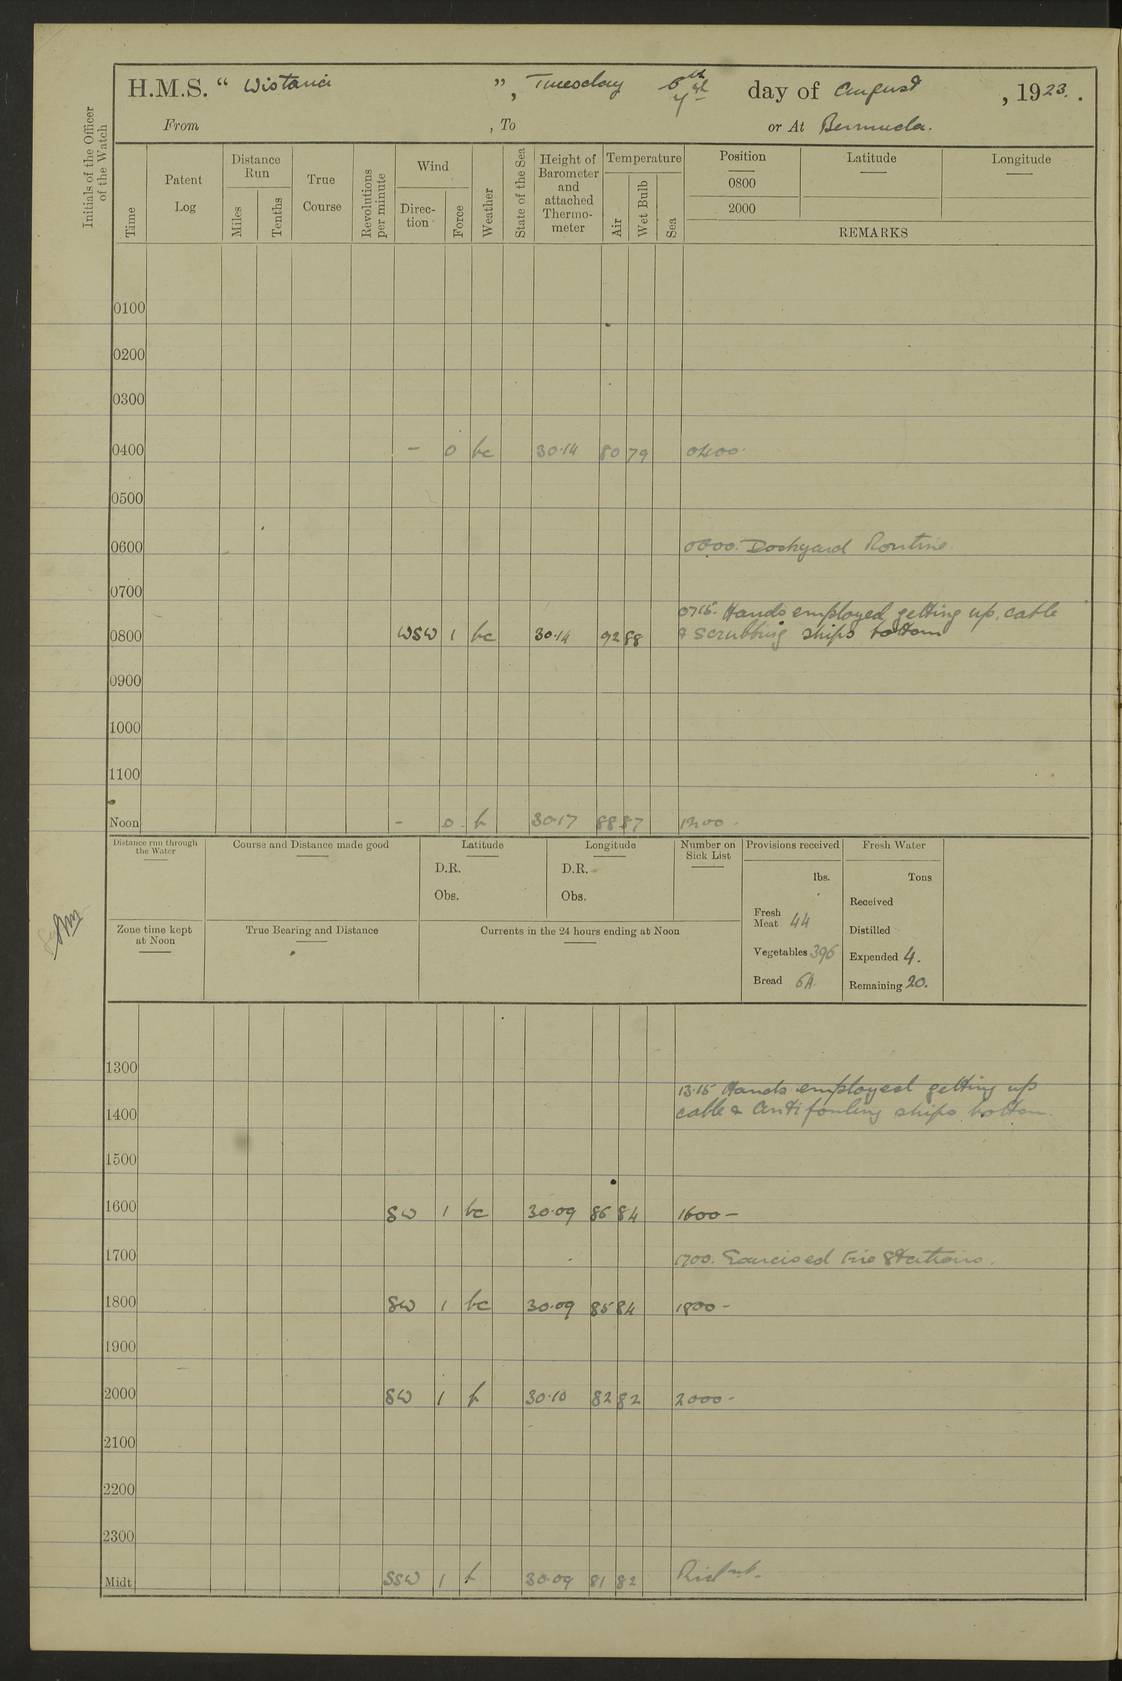 H.M.S. “ Wistaria ”, Tuesday 7th day of August, 1923.
From , To or At Bermuda.
Initials of the Officer of the Watch
Time
Patent Log
Distance Run
Miles
Tenths
True Course
Revolutions per minute
Wind
Direc-tion
Force
Weather
State of the Sea
Height of Barometer and attached Thermo-meter
Temperature
Air
Wet Bulb
Sea
Position Latitude Longitude
0800
2000
REMARKS
0100
0200
0300
0400 - 0 bc 30.14 80 79 0400.
0500
0600 0600. Dockyard Routine.
0700
0715. Hands employed getting up cable
0800 WSW 1 bc 30.14 92 88 & scrubbing ships bottom
0900
1000
1100
Noon - 0 b 30.17 88 87 1200.
Distance run through the Water
Course and Distance made good
Latitude
D.R.
Obs.
Longitude
D.R.
Obs.
Number on Sick List
Provisions received
lbs.
Fresh Meat 44
Vegetables 396
Bread 64
Fresh Water
Tons
Received
Distilled
Expended 4.
Remaining 20.
Zone time kept at Noon
True Bearing and Distance
Currents in the 24 hours ending at Noon
1300
13.15 Hands employed getting up
1400 cable & anti fouling ships bottom.
1500
1600 SW 1 bc 30.09 86 84 1600 -
1700 1700. Exercised Fire Stations.
1800 SW 1 bc 30.09 85 84 1800 -
1900
2000 SW 1 b 30.10 82 82 2000 -
2100
2200
2300
Midt SSW 1 b 30.09 81 82